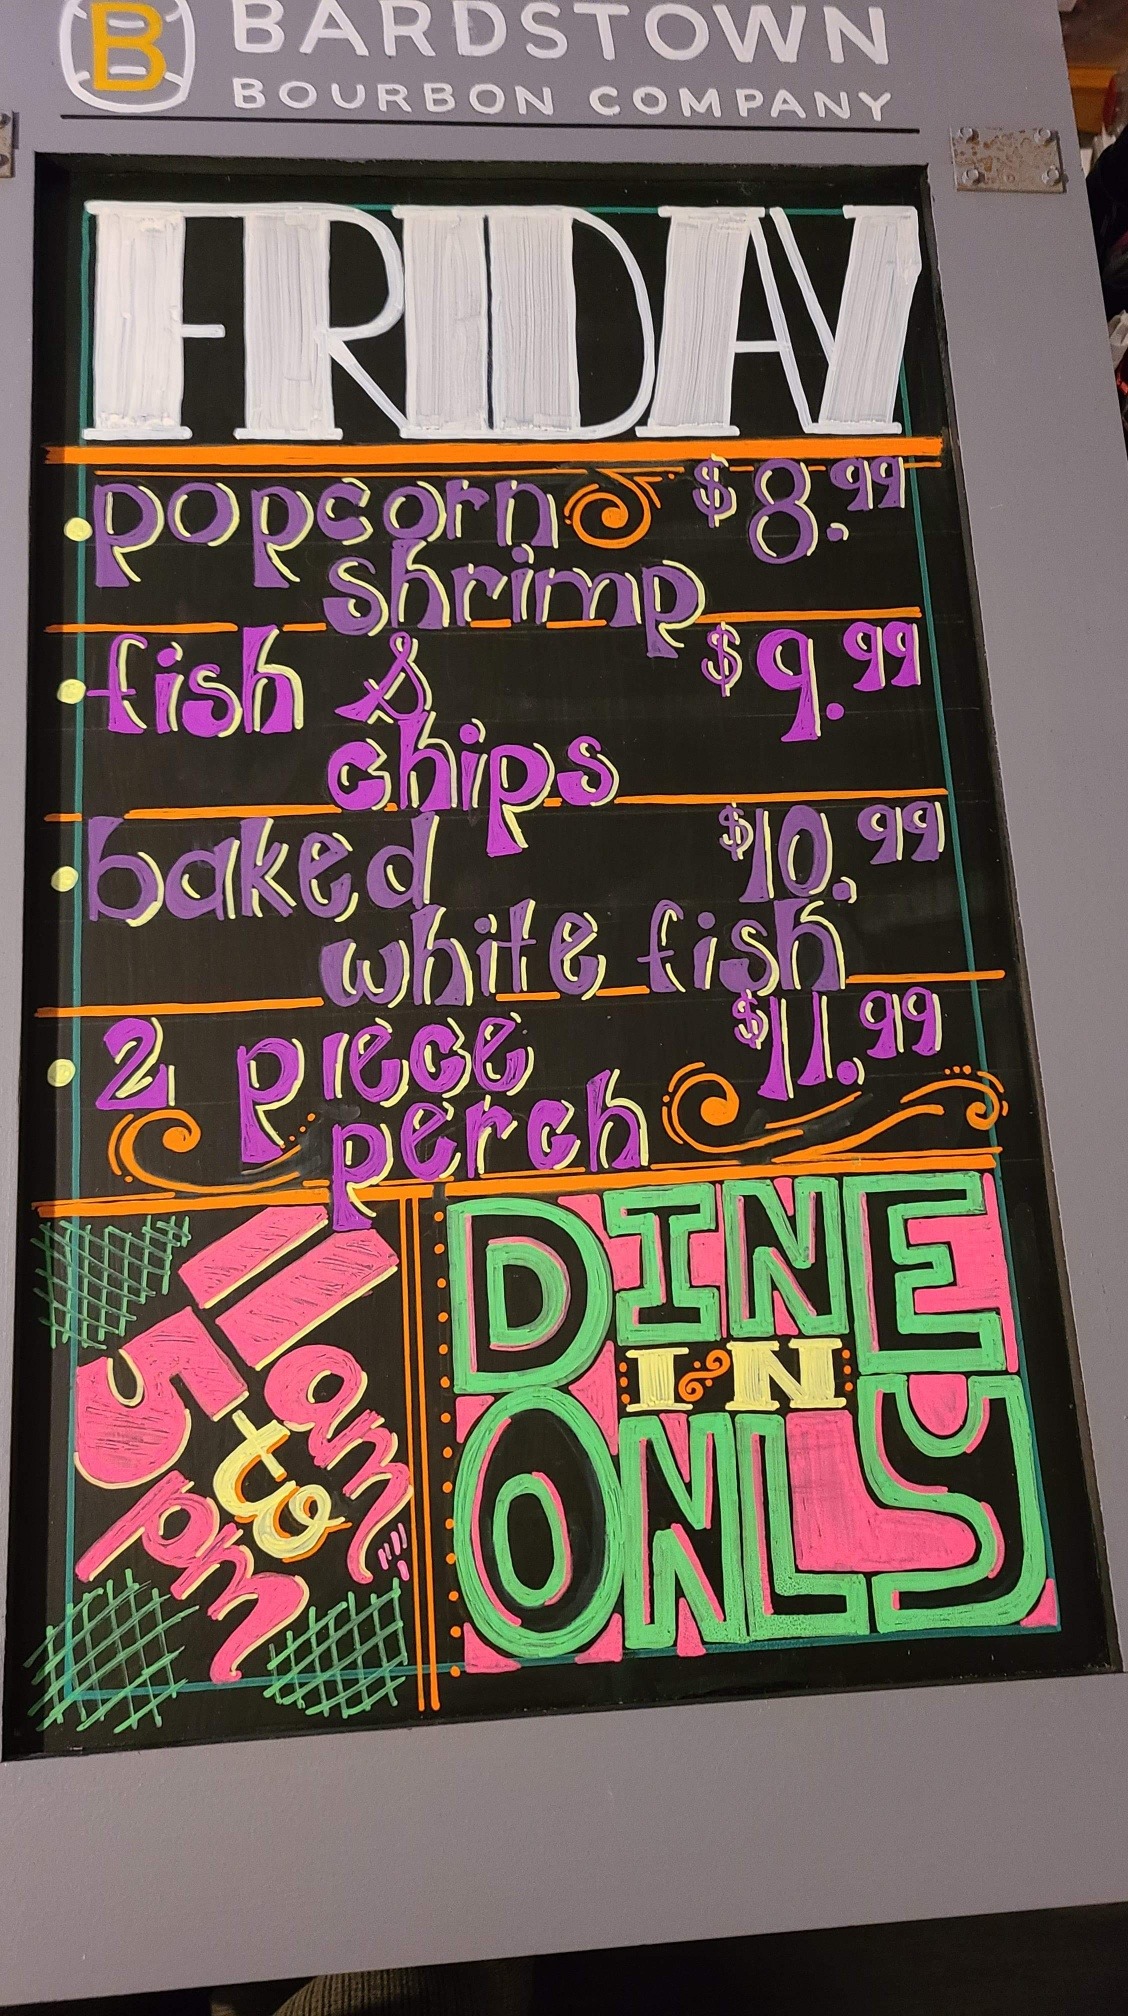 B
BARDSTOWN
BOURBON COMPANY
FRIDAY
popcorn $8.99
shrimp
fish & $9.99
chips
baked $10.99
white fish
2 piece $11.99
perch
11am
to
5pm
DINE
IN
ONLY